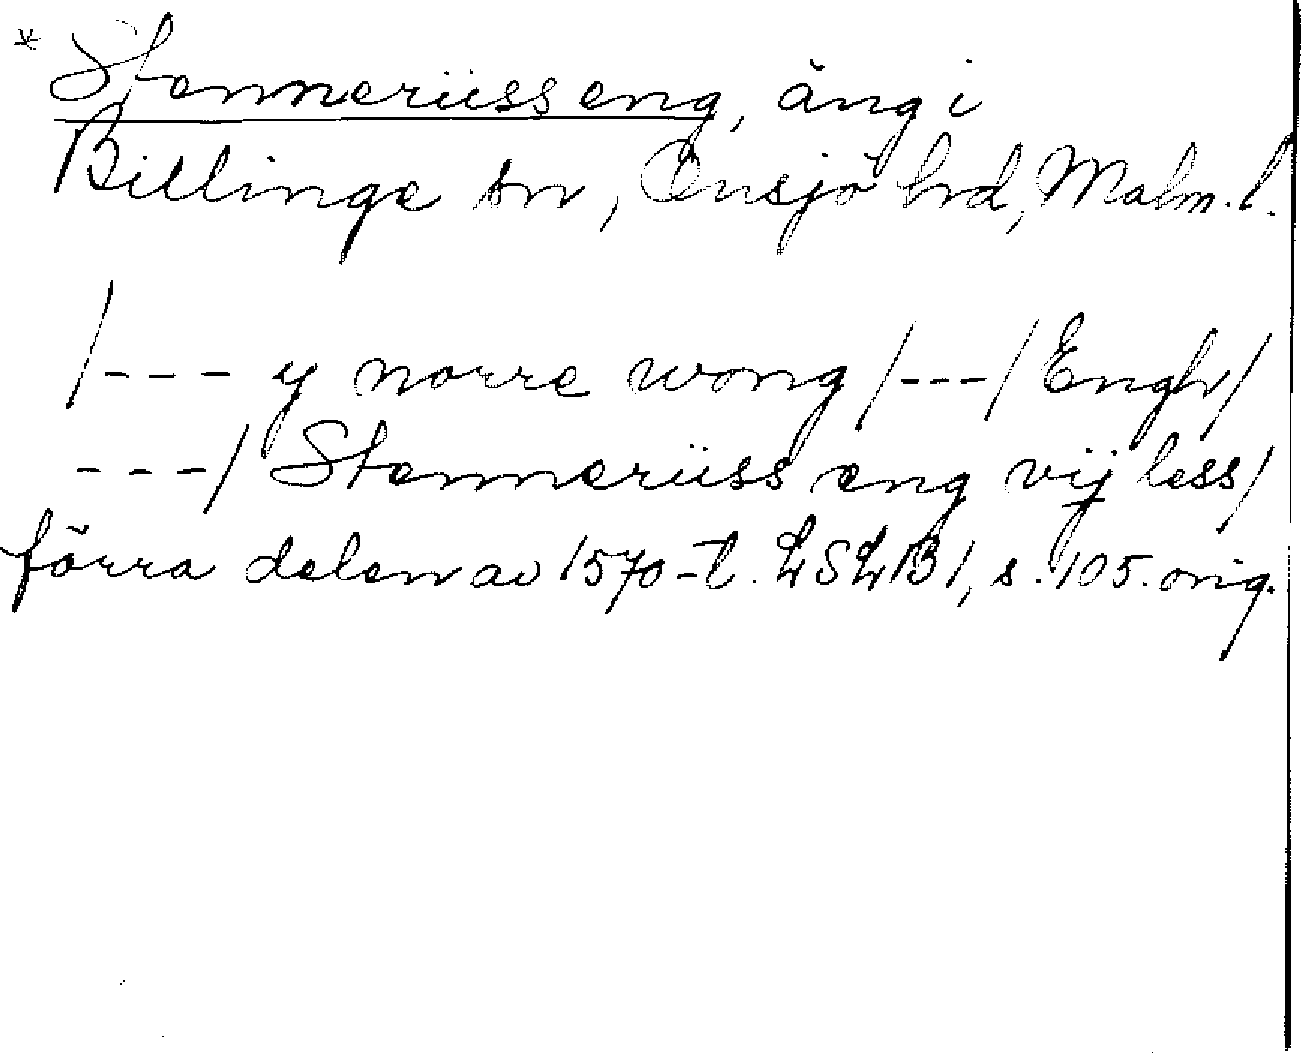 * Stenneriiss eng, äng i
Billinge sn, Onsjö hrd, Malm. l.
/--- y norre wong /---/ Engh/
---/ Stenneriiss eng vij less/
förra delen av 1570-t. LSLB 1, s. 105. orig.